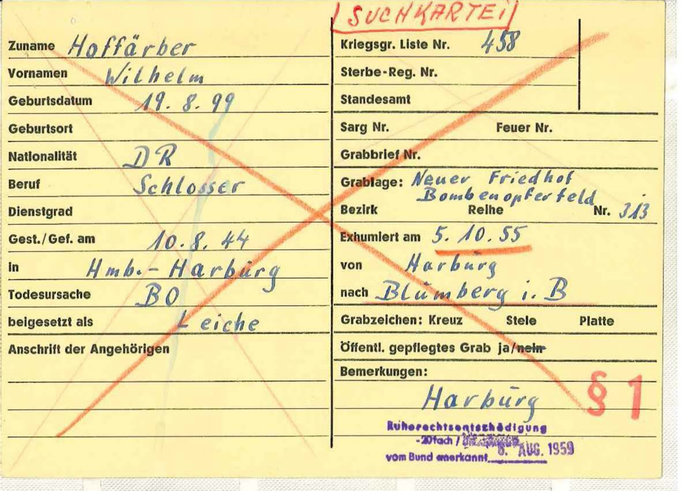 SUCHKARTEI
Zuname Hoffärber
Vornamen Wilhelm
Geburtsdatum 19. 8. 99
Geburtsort
Nationalität DR
Beruf Schlosser
Dienstgrad
Gest./Gef. am 10. 8. 44
in Hmb.-Harburg
Todesursache BO
beigesetzt als Leiche
Anschrift der Angehörigen
Kriegsgr. Liste Nr. 458
Sterbe-Reg. Nr.
Standesamt
Sarg Nr. Feuer Nr.
Grabbrief Nr.
Grablage: Neuer Friedhof
Bombenopferfeld
Bezirk Reihe Nr. 313
Exhumiert am 5. 10. 55
von Harburg
nach Blumberg i. B
Grabzeichen: Kreuz Stele Platte
Öffentl. gepflegtes Grab ja/nein
Bemerkungen:
Harburg
§ 1
Ruherechtsentschädigung
-20fach /
vom Bund anerkannt 8. AUG. 1959